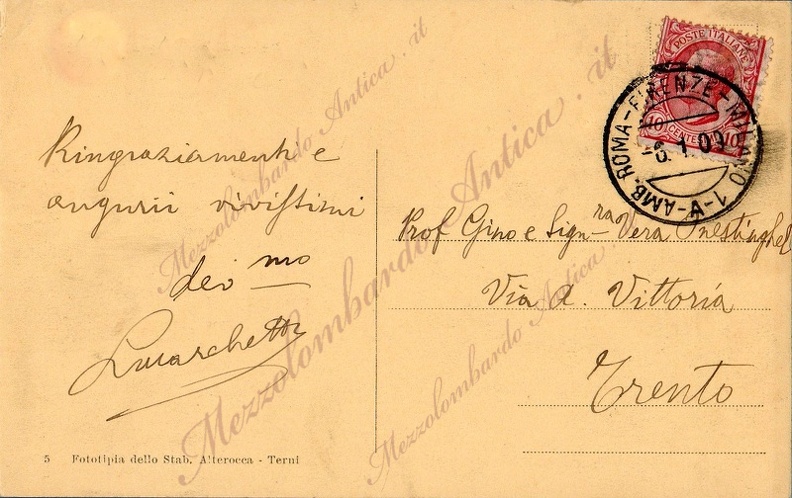 POSTE ITALIANE
10 CENTESIMI 10
AMB. ROMA-FIRENZE-MILANO 1-A
-6.1 09
Ringraziamenti e
augurii vivissimi
dev mo
Prof Gino e Sign.ra Vera Onestinghel
Via d. Vittoria
Trento
5 Fototipia dello Stab. Alterocca - Terni
Mezzolombardo Antica.it
Mezzolombardo Antica.it
Mezzolombardo Antica.it